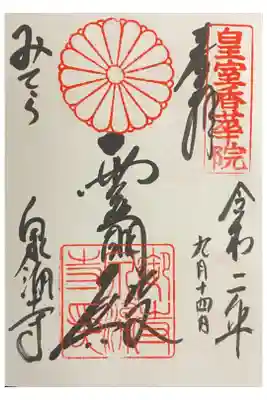 皇室香華院
奉拝
令和二年
九月十四日
霊明殿
みてら
泉涌寺